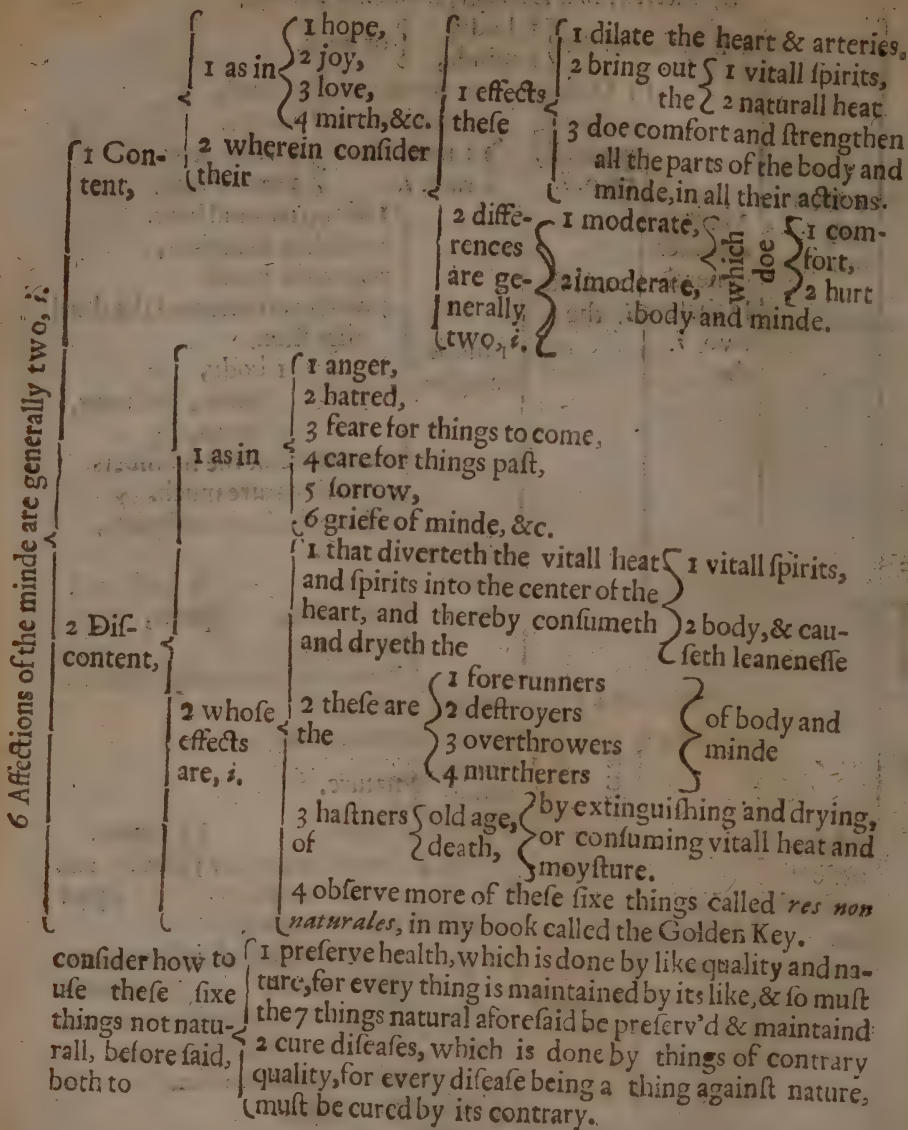 6 Affections of the minde are generally two, i.
1 Con-
tent,
1 as in
1 hope,
2 joy,
3 love,
4 mirth, &c.
2 wherein conſider
their
1 effects
theſe
1 dilate the heart & arteries,
2 bring out
the
1 vitall ſpirits,
2 naturall heat
3 doe comfort and ſtrengthen
all the parts of the body and
minde, in all their actions.
2 diffe-
rences
are ge-
nerally
two, i.
1 moderate,
2 imoderate,
which
doe
1 com-
fort,
2 hurt
body and minde.
2 Diſ-
content,
1 as in
1 anger,
2 hatred,
3 feare for things to come,
4 care for things paſt,
5 ſorrow,
6 griefe of minde, &c.
2 whoſe
effects
are, i.
1 that diverteth the vitall heat
and ſpirits into the center of the
heart, and thereby conſumeth
and dryeth the
1 vitall ſpirits,
2 body, & cau-
ſeth leaneneſſe
2 theſe are
the
1 fore runners
2 deſtroyers
3 overthrowers
4 murtherers
of body and
minde
3 haſtners
of
old age,
death,
by extinguiſhing and drying,
or conſuming vitall heat and
moyſture.
4 obſerve more of theſe ſixe things called res non
naturales, in my book called the Golden Key.
conſider how to
uſe theſe ſixe
things not natu-
rall, before ſaid,
both to
1 preſerve health, which is done by like quality and na-
ture, for every thing is maintained by its like, & ſo muſt
the 7 things natural aforeſaid be preſerv'd & maintaind
2 cure diſeaſes, which is done by things of contrary
quality, for every diſeaſe being a thing againſt nature,
muſt be cured by its contrary.